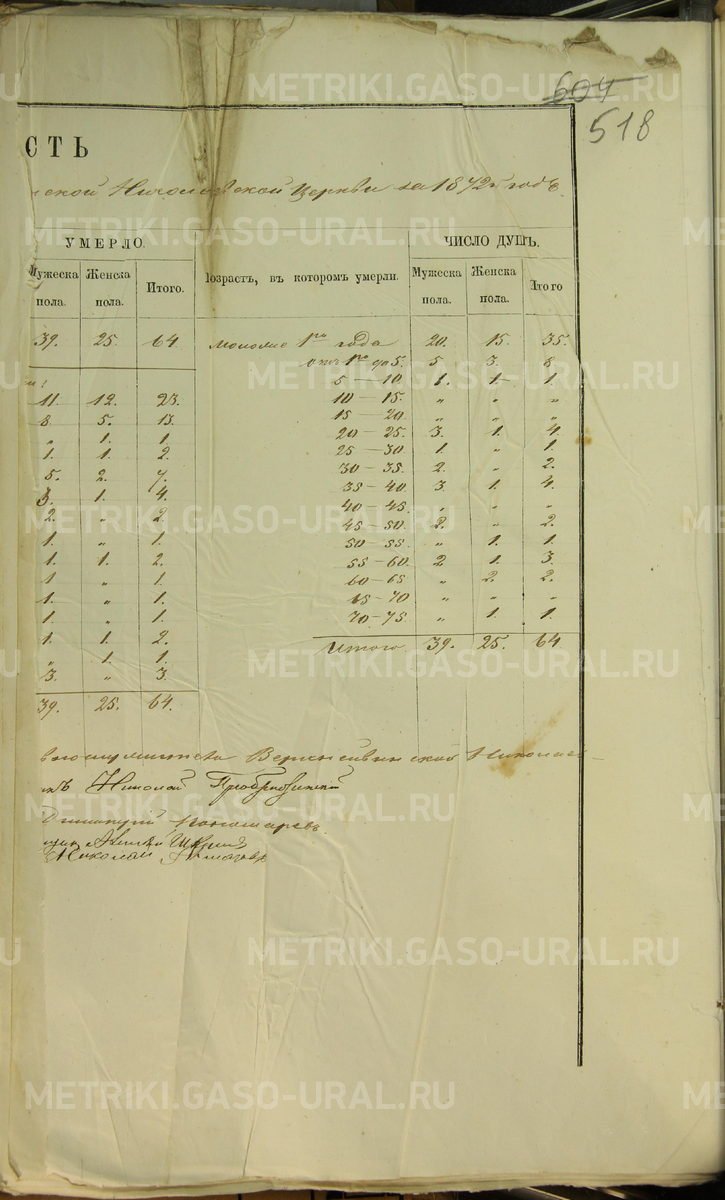 604
518
СТЬ
ской Николаевской Церкви за 1872й годъ.
УМЕРЛО. ЧИСЛО ДУШЪ.
Мужеска пола. Женска пола. Итого. Возрастъ, въ которомъ умерли. Мужеска пола. Женска пола. Итого
39. 25. 64. моложе 1го года 20. 15. 35.
отъ 1го до 5. 5 3. 8
5 — 10 1. 1.
11. 12. 23. 10 — 15. „ „ „
8 5. 13. 15 — 20. „ „ „
„ 1. 1. 20 — 25. 3. 1. 4.
1. 1. 2. 25 — 30 1. „ 1.
30 — 35. 2. „ 2.
5. 2. 7. 35 — 40. 3. 1. 4.
3. 1. 4. 40 — 45. „ „ „
2. „ 2. 45 — 50. 2. „ 2.
1. „ 1. 50 — 55. „ 1. 1.
1. 1. 2. 55 — 60. 2 1. 3.
1 „ 1. 60 — 65 „ 2. 2.
1. „ 1. 65 — 70 „ „ „
1 „ 1. 70 — 75. „ 1. 1.
1. 1. 2. Итого. 39. 25. 64.
„ 1. 1.
3. „ 3.
39. 25. 64.
Николаев-
Николай Преображенский
Пономаревъ
Николай
METRIKI.GASO-URAL.RU